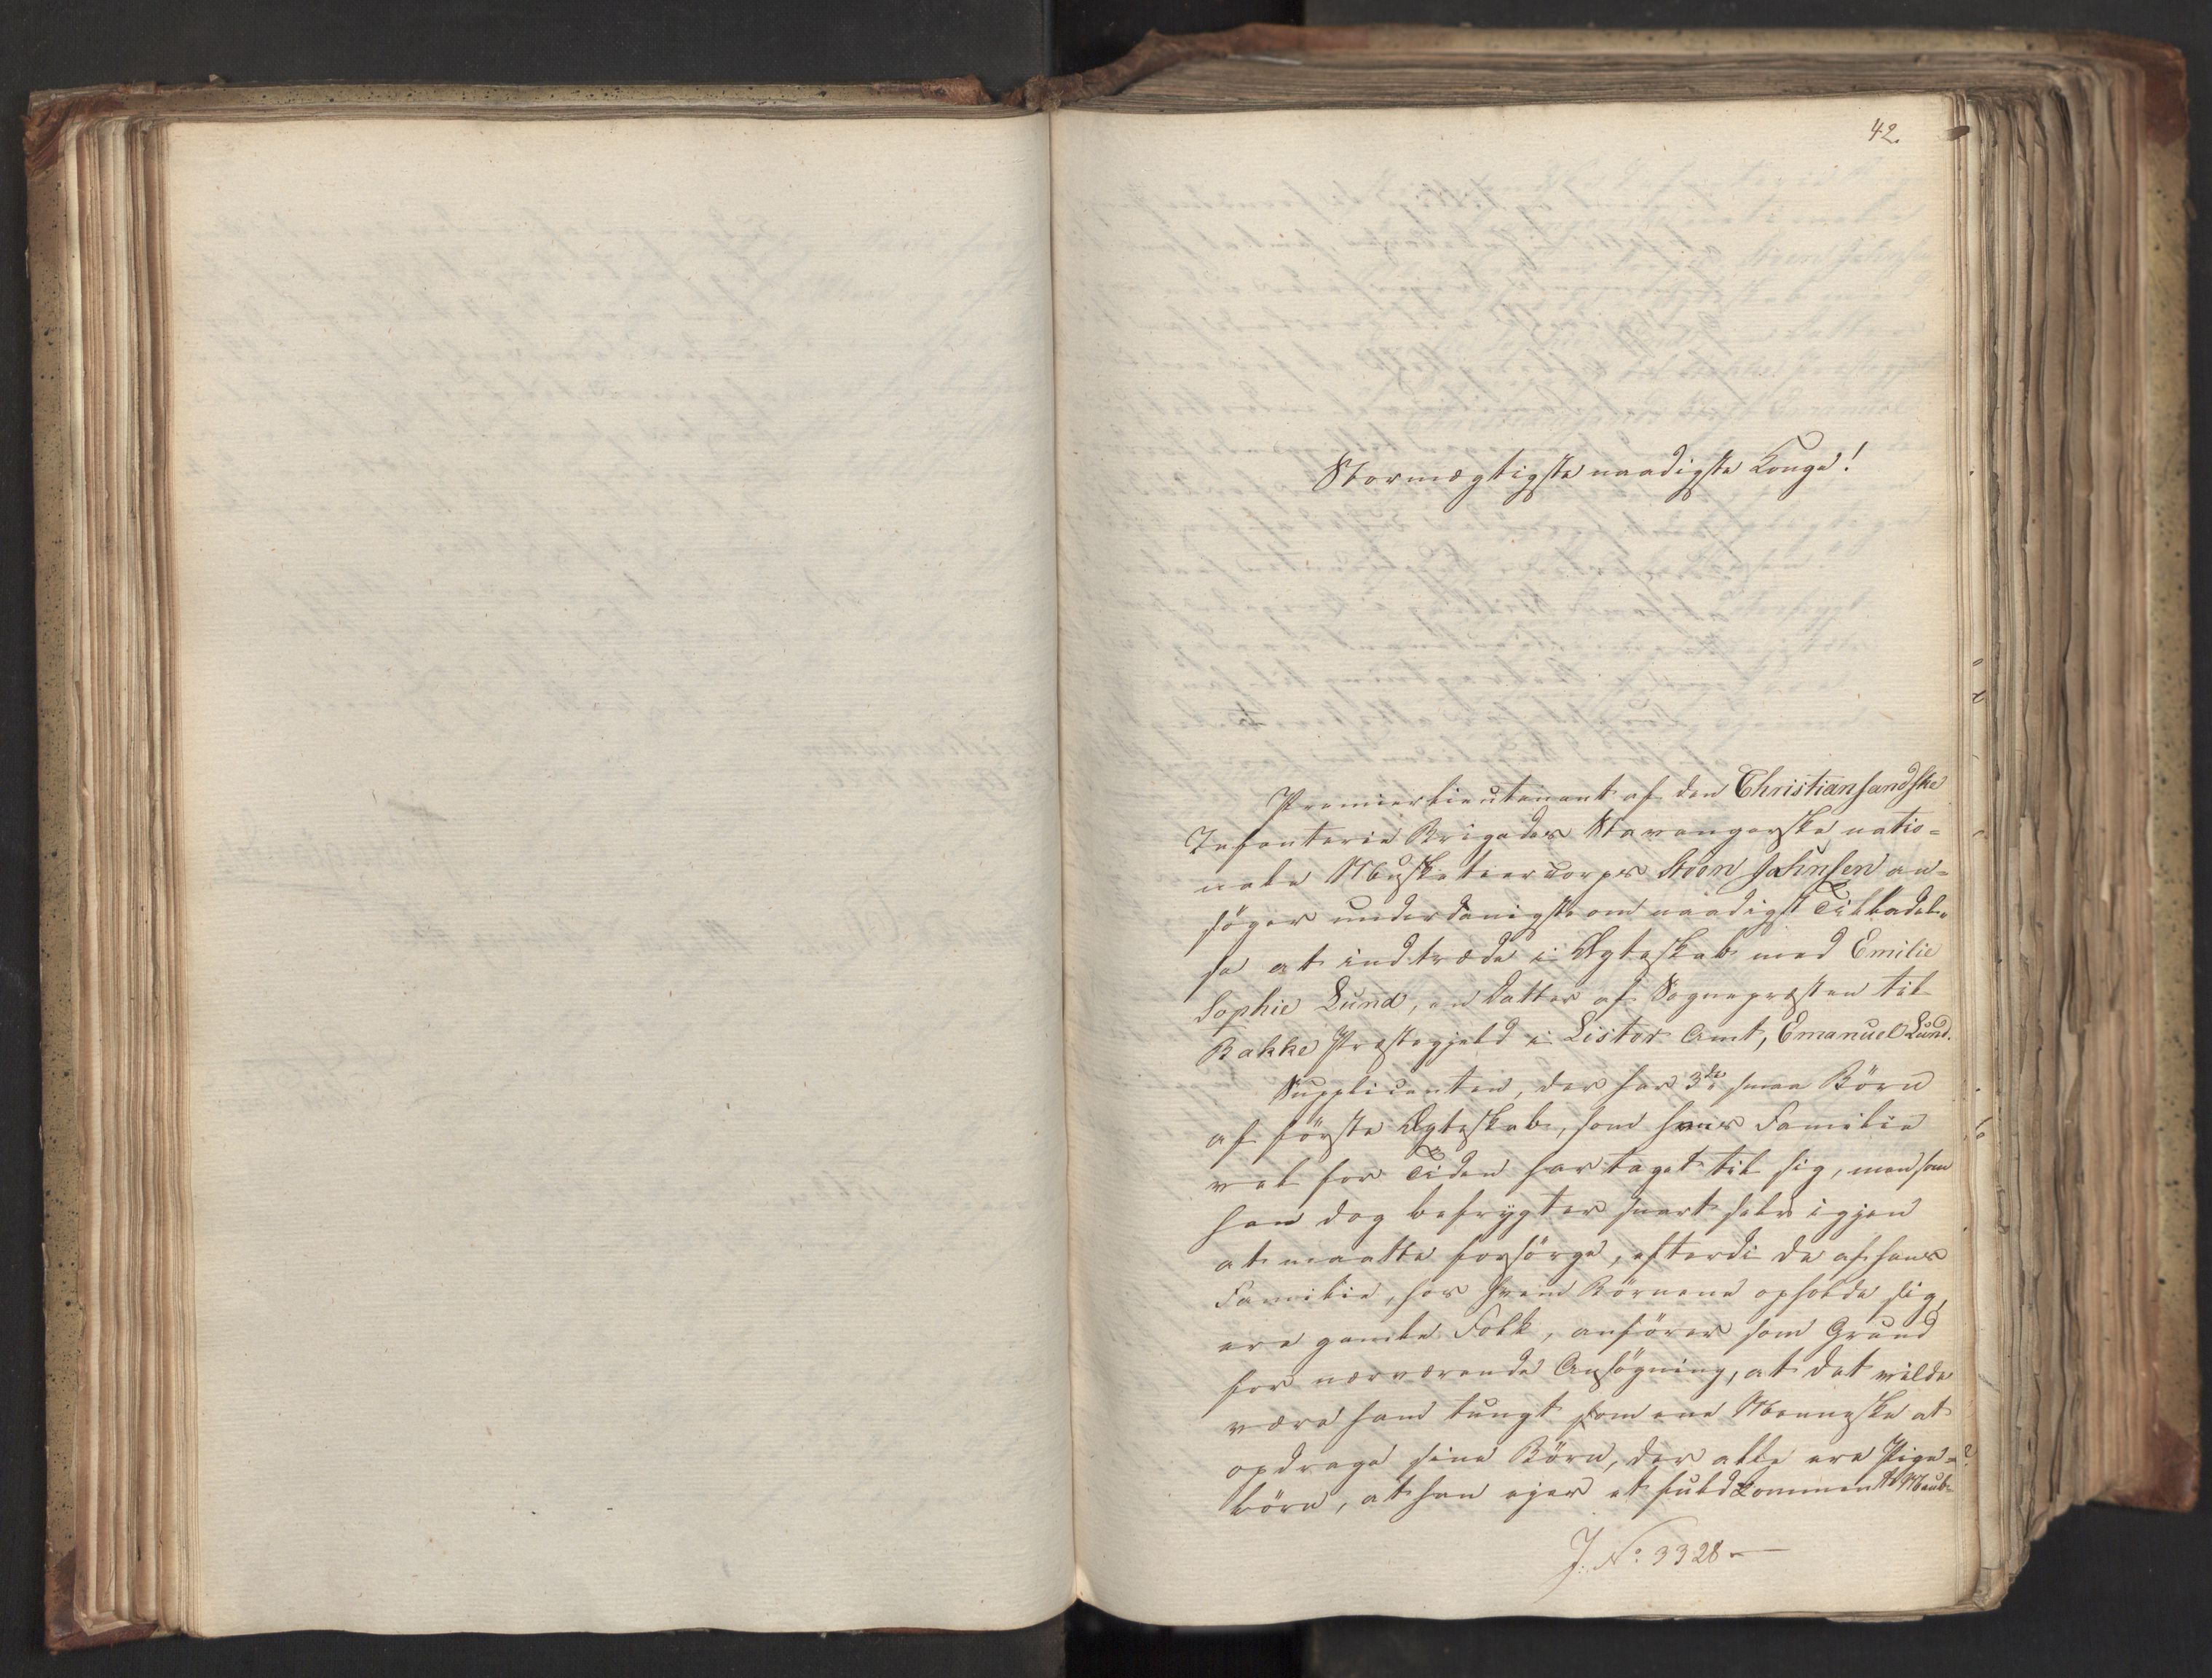 42.
Stormægtigste naadigste Konge!
Premierlieutenant af den Christiansandske
Infanterie Brigades Stavangerske natio=
nale Musketeercorps Steen Jahnsen an=
söger underdanigst om naadigst Tilladel=
se at indtræde i Ægteskab med Emilie
Sophie Lund, en Datter af Sognepræsten til
Bakke Præstegjeld i Lister Amt, Emanuel Lund.
Supplicanten, der har 3de smaa Börn
af förste Ægteskab, som hans Familie
vel for Tiden har taget til sig, men som
han dog befrygter snart selv igjen
at maatte forsörge, efterdi de af hans
Familie, hos hvem Börnene opholde sig,
ere gamle Folk, anförer som Grund
for nærværende Ansögning, at det vilde
være ham tungt som ene Menneske at
opdrage sine Börn, der alle ere Pige=
börn, at han ejer et fuldkomment Meub=
J. No. 3328 —